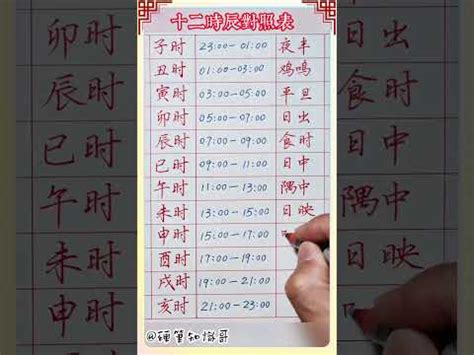 十二時辰對照表
子时 23:00-01:00 夜半
丑时 01:00-03:00 鸡鸣
寅时 03:00-05:00 平旦
卯时 05:00-07:00 日出
辰时 07:00-09:00 食时
巳时 09:00-11:00 日中
午时 11:00-13:00 隅中
未时 13:00-15:00 日映
申时 15:00-17:00
酉时 17:00-19:00
戌时 19:00-21:00
亥时 21:00-23:00
@硬筆知識哥
卯时
辰时
巳时
午时
未时
申时
日出
食时
日中
隅中
日映